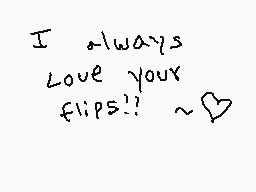 I always
Love your
flips!! ~♡